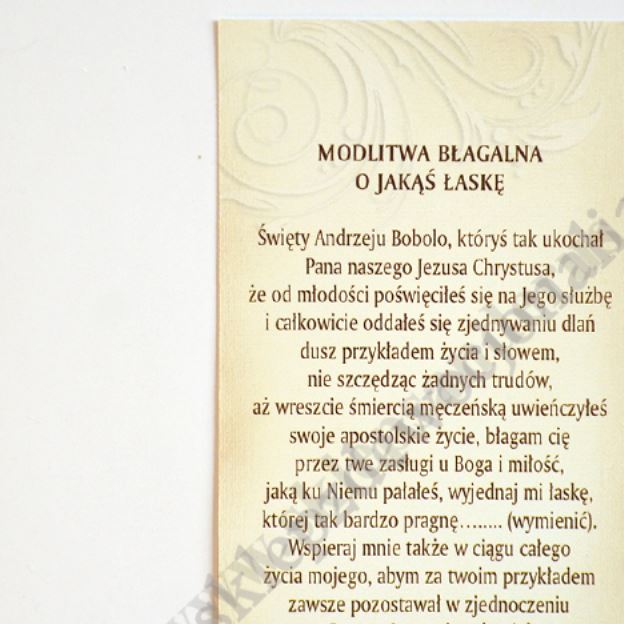 MODLITWA BŁAGALNA
O JAKĄŚ ŁASKĘ
Święty Andrzeju Bobolo, któryś tak ukochał
Pana naszego Jezusa Chrystusa,
że od młodości poświęciłeś się na Jego służbę
i całkowicie oddałeś się zjednywaniu dlań
dusz przykładem życia i słowem,
nie szczędząc żadnych trudów,
aż wreszcie śmiercią męczeńską uwieńczyłeś
swoje apostolskie życie, błagam cię
przez twe zasługi u Boga i miłość,
jaką ku Niemu pałałeś, wyjednaj mi łaskę,
której tak bardzo pragnę........ (wymienić).
Wspieraj mnie także w ciągu całego
życia mojego, abym za twoim przykładem
zawsze pozostawał w zjednoczeniu